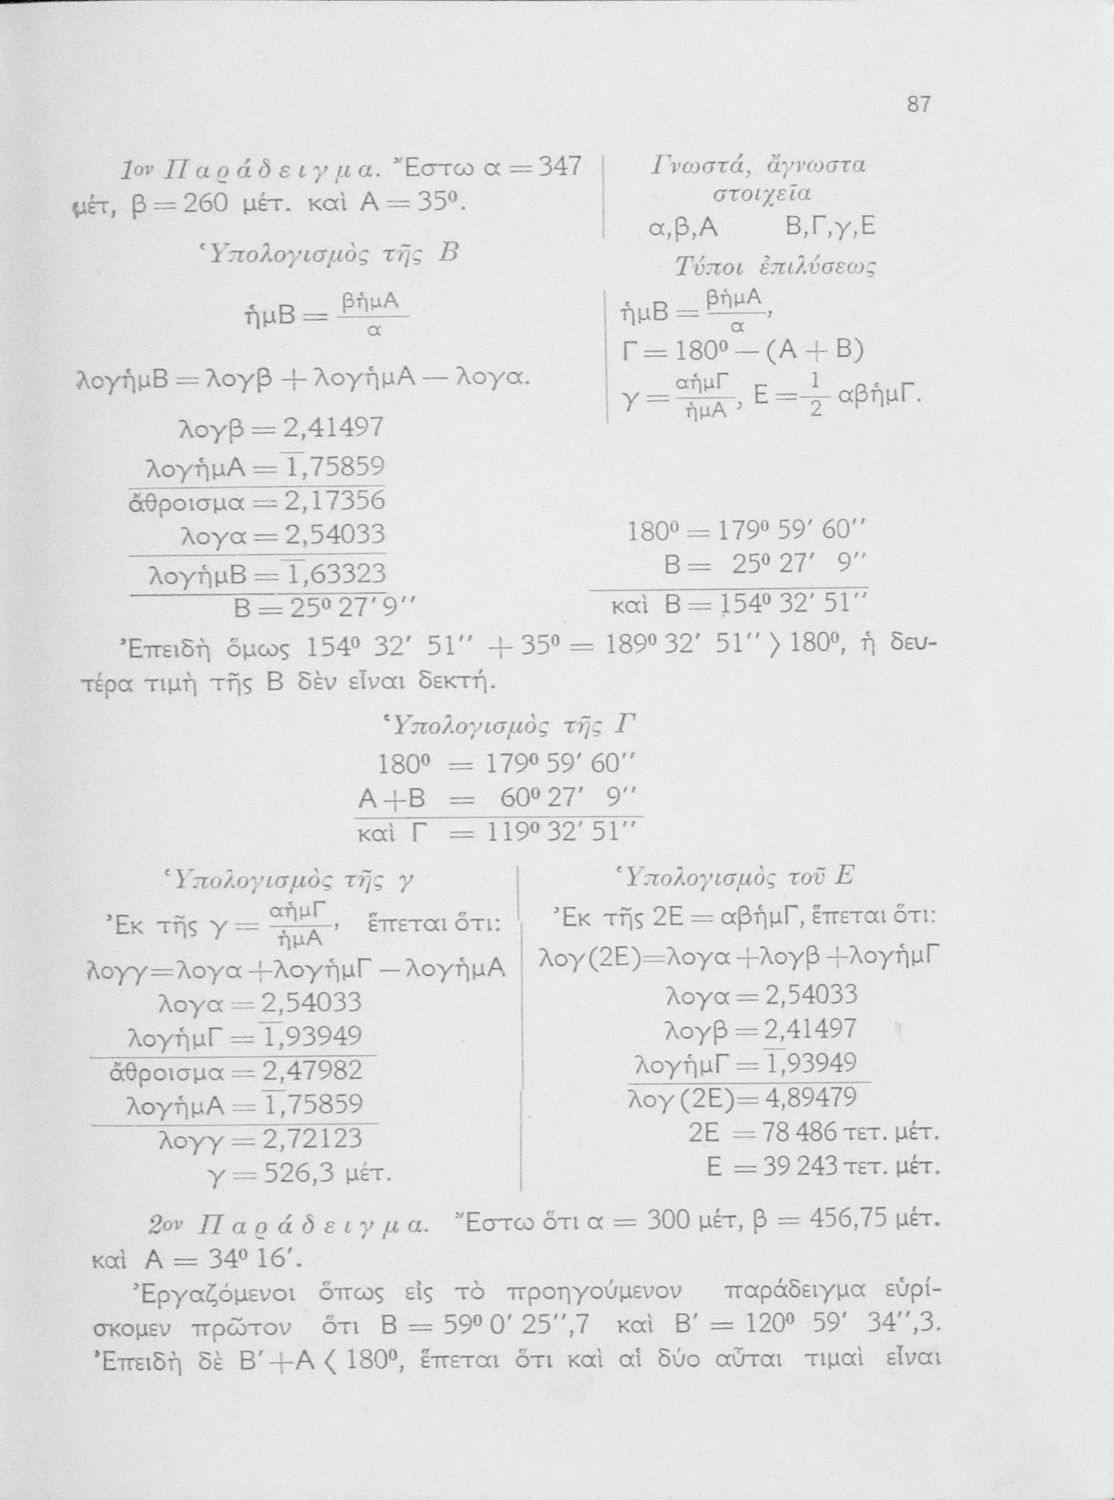 87
1ον Παράδειγμα. Ἔστω α = 347
μέτ, β = 260 μέτ. καὶ Α = 35⁰.
Ὑπολογισμὸς τῆς Β
ἡμΒ = βἡμΑ / α
λογἡμΒ = λογβ + λογἡμΑ — λογα.
λογβ = 2,41497
λογἡμΑ = 1̅,75859
ἄθροισμα = 2,17356
λογα = 2,54033
λογἡμΒ = 1̅,63323
Β = 25⁰ 27′ 9′′
Γνωστά, ἄγνωστα
στοιχεῖα
α,β,Α Β,Γ,γ,Ε
Τύποι ἐπιλύσεως
ἡμΒ = βἡμΑ / α,
Γ = 180⁰ — (Α + Β)
γ = αἡμΓ / ἡμΑ, Ε = 1/2 αβἡμΓ.
180⁰ = 179⁰ 59′ 60′′
Β = 25⁰ 27′ 9′′
καὶ Β = 154⁰ 32′ 51′′
Ἐπειδὴ ὅμως 154⁰ 32′ 51′′ + 35⁰ = 189⁰ 32′ 51′′ 〉 180⁰, ἡ δευ-
τέρα τιμὴ τῆς Β δὲν εἶναι δεκτή.
Ὑπολογισμὸς τῆς Γ
180⁰ = 179⁰ 59′ 60′′
Α +Β = 60⁰ 27′ 9′′
καὶ Γ = 119⁰ 32′ 51′′
Ὑπολογισμὸς τῆς γ
Ἐκ τῆς γ = αἡμΓ / ἡμΑ, ἕπεται ὅτι:
λογγ=λογα +λογἡμΓ — λογἡμΑ
λογα = 2,54033
λογἡμΓ = 1̅,93949
ἄθροισμα = 2,47982
λογἡμΑ = 1̅,75859
λογγ = 2,72123
γ = 526,3 μέτ.
Ὑπολογισμὸς τοῦ Ε
Ἐκ τῆς 2Ε = αβἡμΓ, ἕπεται ὅτι:
λογ(2Ε)=λογα +λογβ +λογἡμΓ
λογα = 2,54033
λογβ = 2,41497
λογἡμΓ = 1̅,93949
λογ (2Ε)= 4,89479
2Ε = 78 486 τετ. μέτ.
Ε = 39 243 τετ. μέτ.
2ον Παράδειγμα. Ἔστω ὅτι α = 300 μέτ, β = 456,75 μέτ.
καὶ Α = 34⁰ 16′.
Ἐργαζόμενοι ὅπως εἰς τὸ προηγούμενον παράδειγμα εὑρί-
σκομεν πρῶτον ὅτι Β = 59⁰ 0′ 25′′,7 καὶ Β′ = 120⁰ 59′ 34′′,3.
Ἐπειδὴ δὲ Β′+Α 〈 180⁰, ἕπεται ὅτι καὶ αἱ δύο αὗται τιμαὶ εἶναι